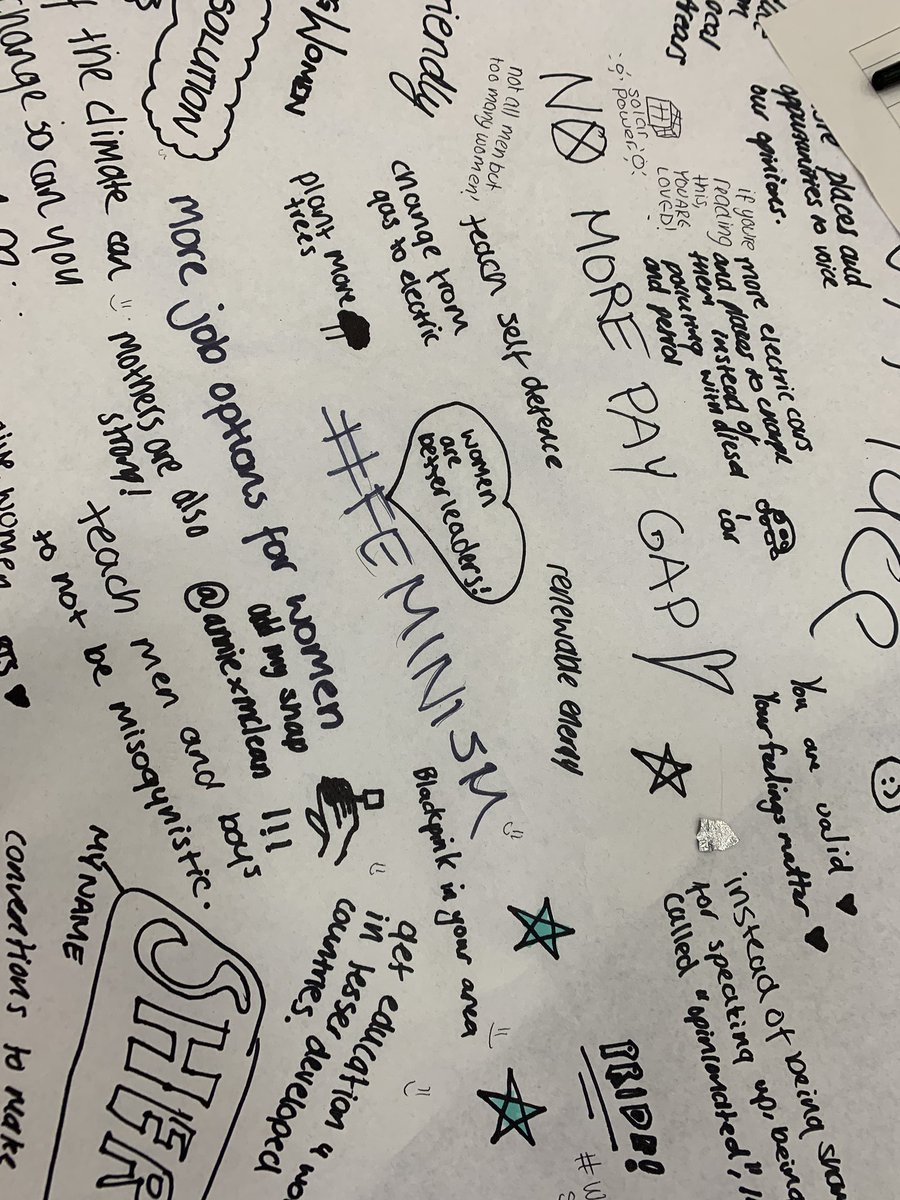 places and
opportunities to voice
our opinions.
solar
power
If you're
reading
this,
YOU ARE
LOVED!
more electric cars
and places to charge
them instead of
polluting with diesel
and petrol car
NO MORE PAY GAP
not all men but
too many women,
teach self defence
change from
gas to electric
plant more
trees
WOMEN
SOLUTION
the climate can
change so can you
More job options for women
women
are
better leaders!
#FEMINISM
renewable energy
mothers are also
strong!
add my snap
@anniexmclean !!!
teach men and boys
to not be misogynistic.
Blackpink in your area
You are valid
Your feelings matter
instead of being
for speaking up, being
called "opinionated",
get education 4
in lesser developed
countries.
PRIDE!
MY NAME
conventions to make